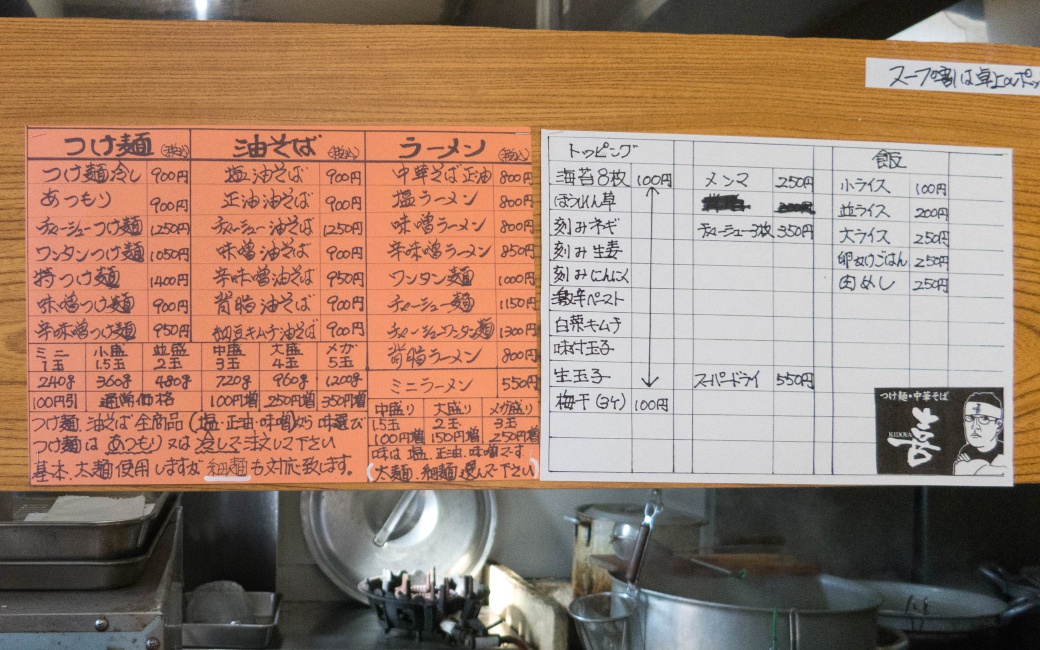 スープ割は卓上のポッ
つけ麺 (税込)
つけ麺冷し 900円
あつもり 900円
チャーシューつけ麺 1250円
ワンタンつけ麺 1050円
特つけ麺 1400円
味噌つけ麺 900円
辛味噌つけ麺 950円
油そば (税込)
塩油そば 900円
正油油そば 900円
チャーシュー油そば 1250円
味噌油そば 900円
辛味噌油そば 950円
背脂油そば 900円
納豆キムチ油そば 900円
ミニ 小盛 並盛 中盛 大盛 メガ
1玉 1.5玉 2玉 3玉 4玉 5玉
240g 360g 480g 720g 960g 1200g
100円引 通常価格 100円増 250円増 350円増
つけ麺.油そば全商品(塩・正油・味噌)から味選び
つけ麺は あつもり又は冷しで注文して下さい
基本.太麺使用しますが細麺も対応致します。
ラーメン (税込)
中華そば正油 800円
塩ラーメン 800円
味噌ラーメン 800円
辛味噌ラーメン 850円
ワンタン麺 1000円
チャーシュー麺 1150円
チャーシューワンタン麺 1300円
背脂ラーメン 800円
ミニラーメン 550円
中盛り 大盛り メガ盛り
1.5玉 2玉 3玉
100円増 150円増 250円増
味は 塩.正油.味噌です
(太麺.細麺選んで下さい)
トッピング
海苔8枚 100円
ほうれん草
刻みネギ
刻み生姜
刻みにんにく
激辛ペースト
白菜キムチ
味付玉子
生玉子
梅干(3ケ) 100円
メンマ 250円
チャーシュー3枚 350円
スーパードライ 550円
飯
小ライス 100円
並ライス 200円
大ライス 250円
卵かけごはん 250円
肉めし 250円
つけ麺・中華そば
KIDOYA
喜